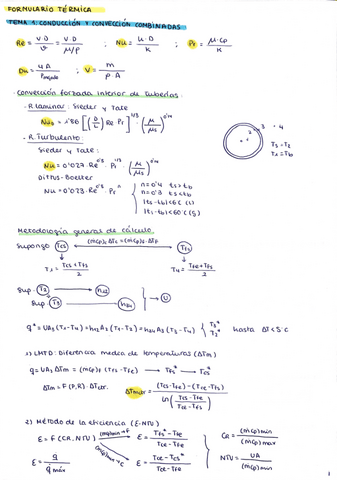 FORMULARIO TÉRMICA
TEMA 1: CONDUCCIÓN Y CONVECCIÓN COMBINADAS
Re = V·D/ν = V·D/(μ/ρ) ; Nu = h·D/K ; Pr = μ·Cp/K
DH = 4A/Pmojado ; V = m/(ρ A)
· Convección forzada interior de tuberías.
- R.Laminar: Sieder y Tate
NuD = 1'86 [(D/L) Re Pr]^1/3 · (μ/μs)^0'14
- R. Turbulento
Sieder y Tate:
Nu = 0'027·Re^0'8·Pr^1/3·(μ/μs)^0'14
Dittus-Boelter
Nu = 0'023·Re^0'8·Pr^n
n=0'4 ts>tb
n=0'3 ts<tb
|ts-tb|<6°C (l)
|ts-tb|<60°C (g)
2 3 · 4
T3 = T2
T1 = Tb
Metodología general de cálculo.
Supongo Tcs (ṁcp)c ΔTc = (ṁcp)F·ΔTF TFs
T1 = (Tcs + TFs)/2
T4 = (TFe+TFs)/2
Sup. T2 → h12
Sup. T3 → h34
→ U
q* = UA3(T1-T4) = h12 A2(T1-T2) = h34 A3(T3-T4) { T3* T2* hasta ΔT<5°C
1) LMTD: Diferencia media de temperaturas (ΔTm)
q = UA3 ΔTm = (ṁcp)F (TFs-TFe) → TFs* → Tcs*
ΔTm = F(P,R)·ΔTctr.
ΔTmctr = ((Tcs-TFe)-(Tce-TFs))/ln((Tcs-TFe)/(Tce-TFs))
2) Método de la eficiencia (E-NTU)
E = F(CR, NTU)
(ṁcp)min→F E = (TFs*-TFe)/(Tce-TFe)
(ṁcp)min→C E = (Tce-Tcs*)/(Tce-TFe)
E = q/qmáx
CR = (ṁcp)min/(ṁcp)max
NTU = UA/(ṁcp)min